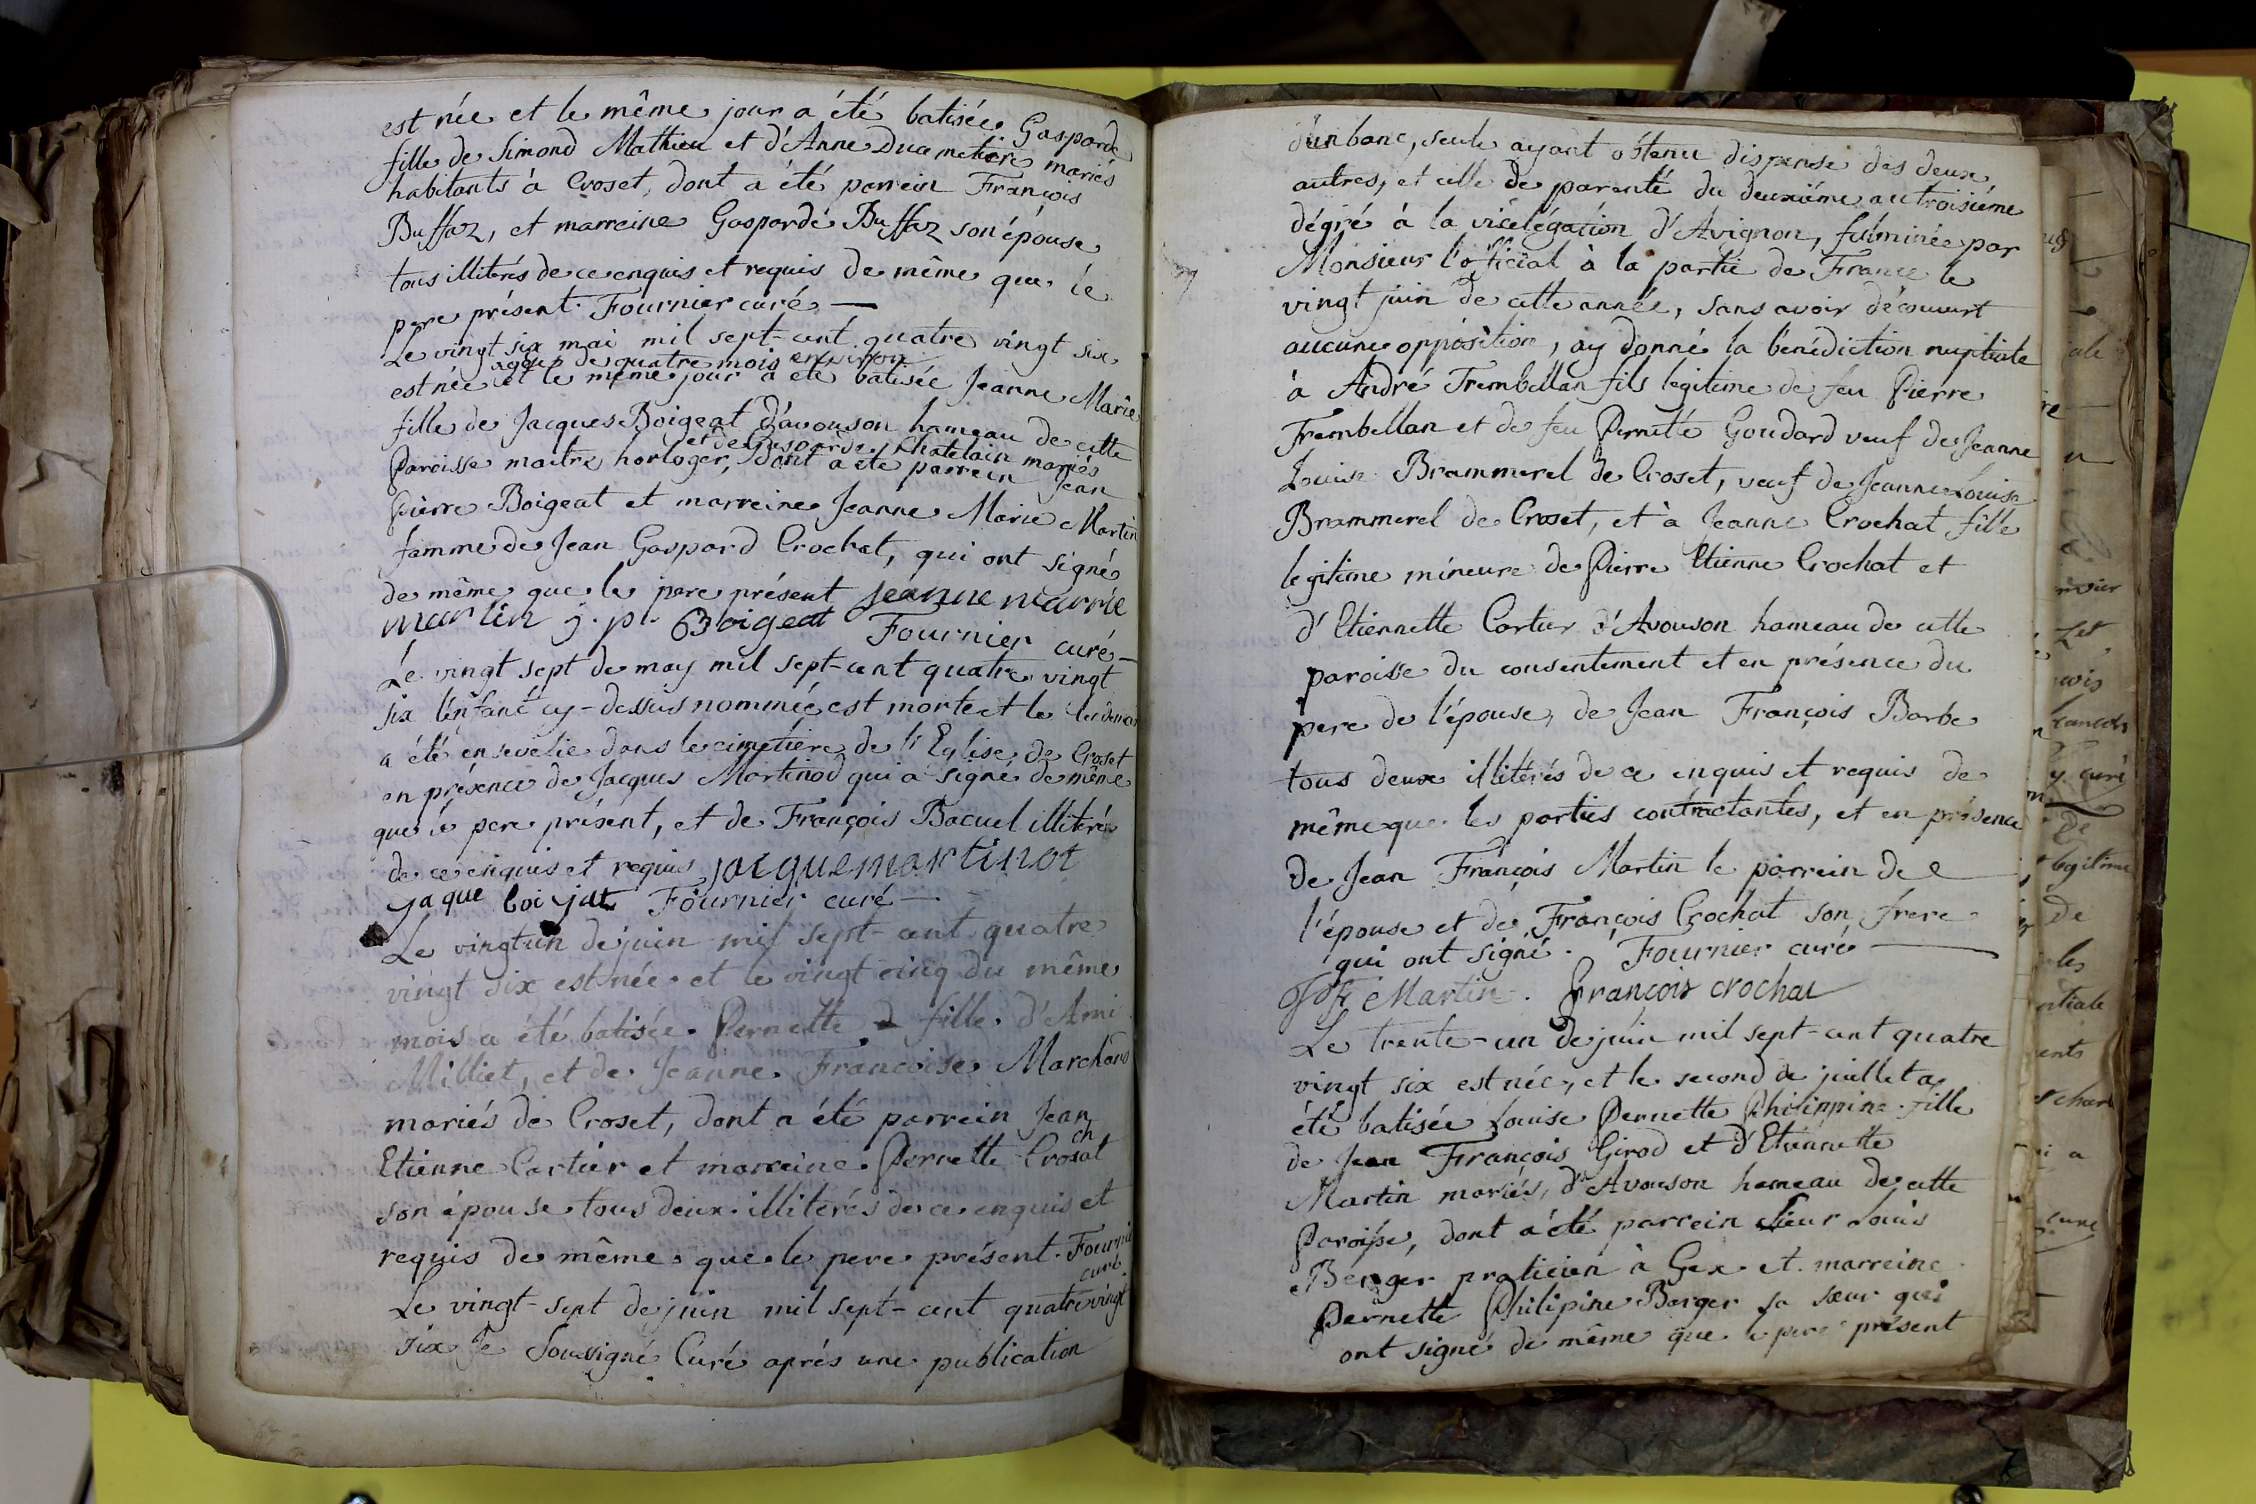 est née et le même jour a été batisée Gasparde
fille de Simond Mathieu et d'Anne Ducimetière mariés
habitants à Croset, dont a été parrein François
Buffaz, et marreine Gasparde Buffaz son épouse
tous illiterés de ce enquis et requis de même que le
pere présent. Fournier curé —
Le vingt six mai mil sept-cent quatre vingt six
agée de quatre mois environ
est née et le même jour a été batisée Jeanne Marie
fille de Jacques Boigeat d'avouson hameau de cette
et de Gasparde Chatelain mariés
Paroisse maitre horloger, dont a été parrein Jean
Pierre Boigeat et marreine Jeanne Marie Martin
famme de Jean Gaspard Crochat, qui ont signé
de même que le pere présent jeanne marrie
martin j. pi. Boigeat Fournier curé —
Le vingt sept de may mil sept-cent quatre vingt
six l'enfant cy-dessus nommée est morte et le
a été ensevelie dans le cimetière de l'Eglise de Croset
en présence de Jacques Martinod qui a signé de même
que le pere présent, et de François Bacuel illiterés
de ce enquis et requis jacque martinot
jaque boi jat Fournier curé —
Le vingt un de juin mil sept-cent quatre
vingt six est née et le vingt cinq du même
mois a été batisée Pernette fille d'Ami
Milliet, et de Jeanne Françoise Marchand
mariés de Croset, dont a été parrein Jean
ch
Etienne Cartier et marreine Pernette Crosat
son épouse tous deux illiterés de ce enquis et
requis de même que le pere présent. Fournier
curé
Le vingt-sept de juin mil sept-cent quatre vingt
six Je Sousigné Curé aprés une publication
d'un banc, seule ayant obtenu dispense des deux
autres, et celle de parenté du deuxiéme au troisiéme
dégré à la vicelégation d'Avignon, fulminée par
Monsieur l'official à la partie de France le
vingt juin de cette année, sans avoir découvert
aucune opposition, ay donné la bénédiction nuptiale
à André Trembellan fils legitime de feu Pierre
Trembellan et de feu Pernette Goudard veuf de Jeanne
Louise Brammerel de Croset, veuf de Jeanne Louise
Brammerel de Croset, et à Jeanne Crochat fille
legitime mineure de Pierre Etienne Crochat et
d'Etiennette Cartier d'Avouson hameau de cette
paroisse du consentement et en présence du
pere de l'épouse, de Jean François Barbe
tous deux illitérés de ce enquis et requis de
même que les parties contractantes, et en présence
de Jean François Martin le parrein de
l'épouse et de François Crochat son frere
qui ont signé. Fournier curé —
J fr Martin. françois crochat
Le trente-un de juin mil sept-cent quatre
vingt six est née, et le second de juillet a
été batisée Louise Pernette Philippine fille
de Jean François Girod et d'Etiennette
Martin mariés, d'Avouson hameau de cette
Paroisse, dont a été parrein Sieur Louis
Berger praticien à Gex et marreine
Pernette Philipine Berger sa sœur qui
ont signé de même que le pere présent